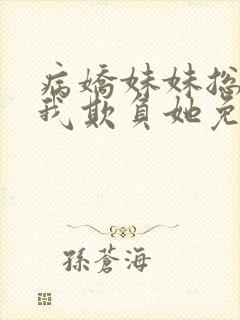 病嬌妹妹总
我欺負她免
孫蒼海